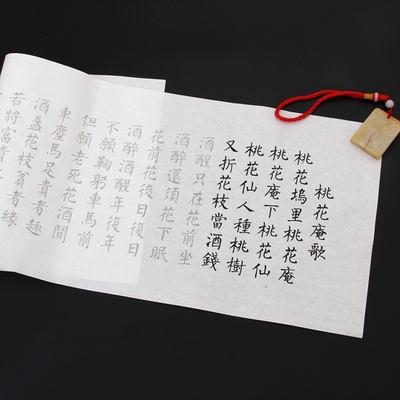 桃花庵歌
桃花塢里桃花庵
桃花庵下桃花仙
桃花仙人種桃樹
又折花枝當酒錢
酒醒只在花前坐
酒醉還須花下眠
花前花後日復日
酒醉酒醒年復年
不願鞠躬車馬前
但願老死花酒間
車塵馬足貴者趣
酒盞花枝貧者緣
若將富貴